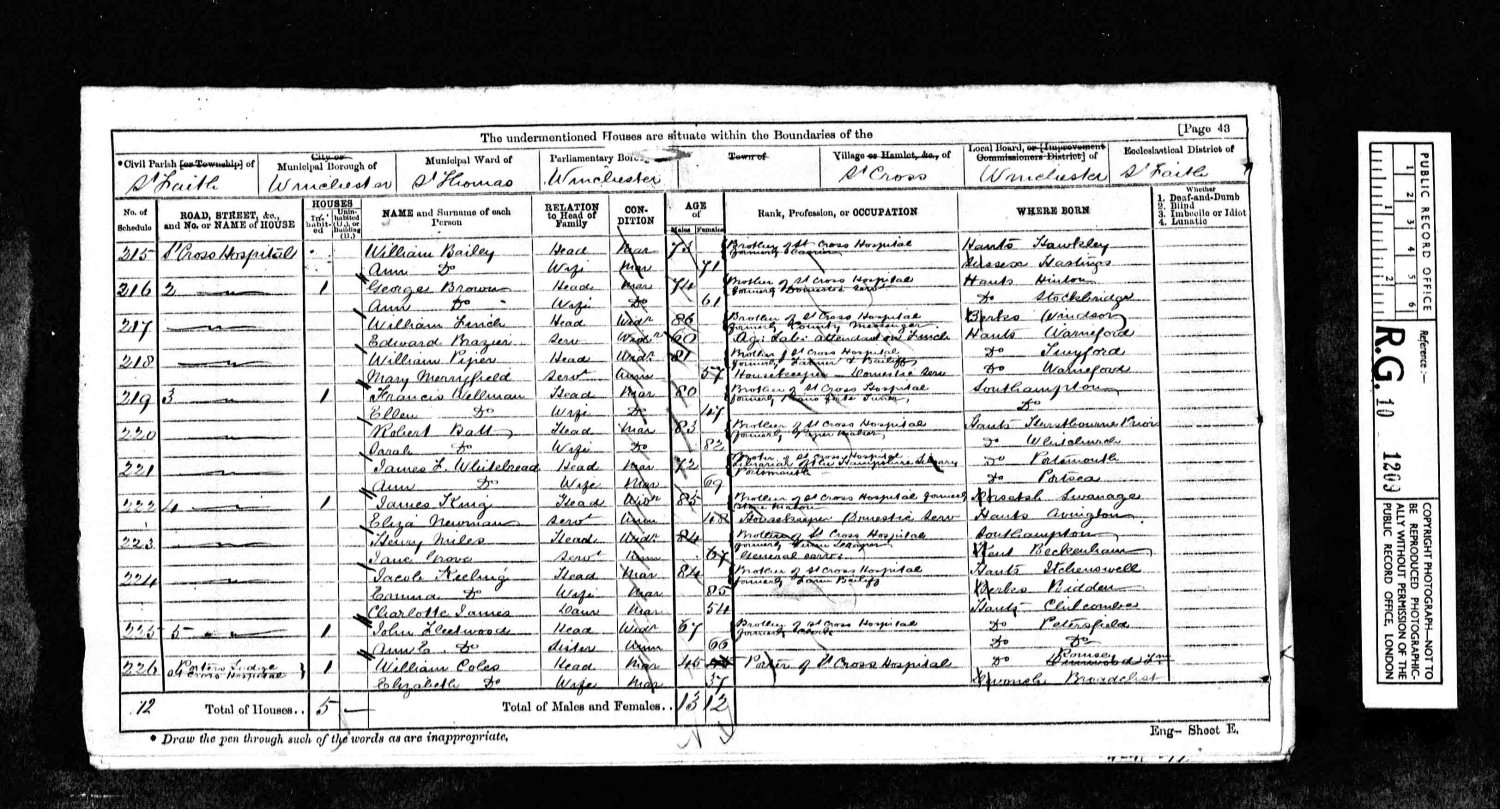 The undermentioned Houses are situate within the Boundaries of the [Page 43
*Civil Parish [or Township] of City or Municipal Borough of Municipal Ward of Parliamentary Town of Village or Hamlet, &c., of Local Board, or [Improvement Commissioners District] of Ecclesiastical District of
St Faith Winchester St Thomas Winchester St Cross Winchester St Faith
No. of Schedule ROAD, STREET, &c., and No. or NAME of HOUSE HOUSES Inhabited Uninhabited (U.), or Building (B.) NAME and Surname of each Person RELATION to Head of Family CONDITION AGE of Males Females Rank, Profession, or OCCUPATION WHERE BORN Whether 1. Deaf-and-Dumb 2. Blind 3. Imbecile or Idiot 4. Lunatic
215 St Cross Hospital William Bailey Head Mar 73 Brother of St Cross Hospital formerly Hants Hawkley
Ann Do Wife Mar 71 Sussex Hastings
216 2 1 George Brown Head Mar 74 Brother of St Cross Hospital formerly Domestic Serv Hants Hinton
Ann Do Wife Do 61 Do Stockbridge
217 William Finch Head Widr 86 Brother of St Cross Hospital formerly County Messenger Berks Windsor
Edward Brazier Serv Widr 60 Ag: Lab: attendant on Finch Hants Warneford
218 William Piper Head Widr 81 Brother of St Cross Hospital formerly & Bailiff Do Twyford
Mary Merryfield Servt Unm 57 Housekeeper Domestic Serv Do Warneford
219 3 1 Francis Wellman Head Mar 80 Brother of St Cross Hospital formerly Piano Forte Tuner Southampton
Ellen Do Wife Do 47 Do
220 Robert Batt Head Mar 83 Brother of St Cross Hospital formerly Paper Maker Hants Hurstbourne Priors
Sarah Do Wife Do 82 Do Whitchurch
221 James F. Whitebread Head Mar 72 Brother of St Cross Hospital Librarian of the Hampshire Library Portsmouth Do Portsmouth
Ann Do Wife Mar 69 Do Portsea
222 4 1 James King Head Widr 85 Brother of St Cross Hospital formerly Stone Mason Dorsetsh Swanage
Eliza Newman Servt Unm 48 Housekeeper Domestic Serv Hants Avington
223 Henry Miles Head Widr 84 Brother of St Cross Hospital formerly Southampton
Jane Grove Servt Unm 67 General Servt Kent Beckenham
224 Jacob Keeling Head Mar 84 Brother of St Cross Hospital formerly Farm Bailiff Hants Itchenswell
Emma Do Wife Mar 85 Berks
Charlotte James Daur Mar 54 Hants Chilcombe
225 5 1 John Fleetwood Head Widr 67 Brother of St Cross Hospital formerly Clerk Do Petersfield
Ann E. Do Sister Unm 66 Do Do
226 Porters Lodge St Cross Hospital 1 William Coles Head Mar 45 Porter of St Cross Hospital Do Romsey
Elizabeth Do Wife Mar 37 Devonsh Broadclist
12 Total of Houses.. 5 Total of Males and Females.. 13 12
* Draw the pen through such of the words as are inappropriate.
Eng- Sheet E.
PUBLIC RECORD OFFICE
1 2 3 4 5 6
1 2
Reference :-
R.G. 10 1209
COPYRIGHT PHOTOGRAPH—NOT TO BE REPRODUCED PHOTOGRAPHICALLY WITHOUT PERMISSION OF THE PUBLIC RECORD OFFICE, LONDON